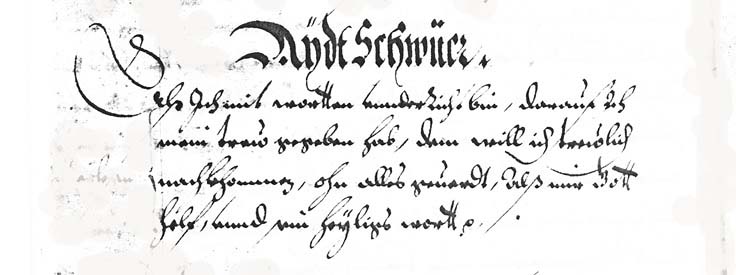 Aÿdt Schwüer.
Alß Ich mit wortten vnnderricht bin, darauf Ich
mein trew gegeben hab, dem will ich trewlich
nachkhommen, ohn alles geuerdt, Alß mir Gott
helf, vnnd sein heÿligs wortt.